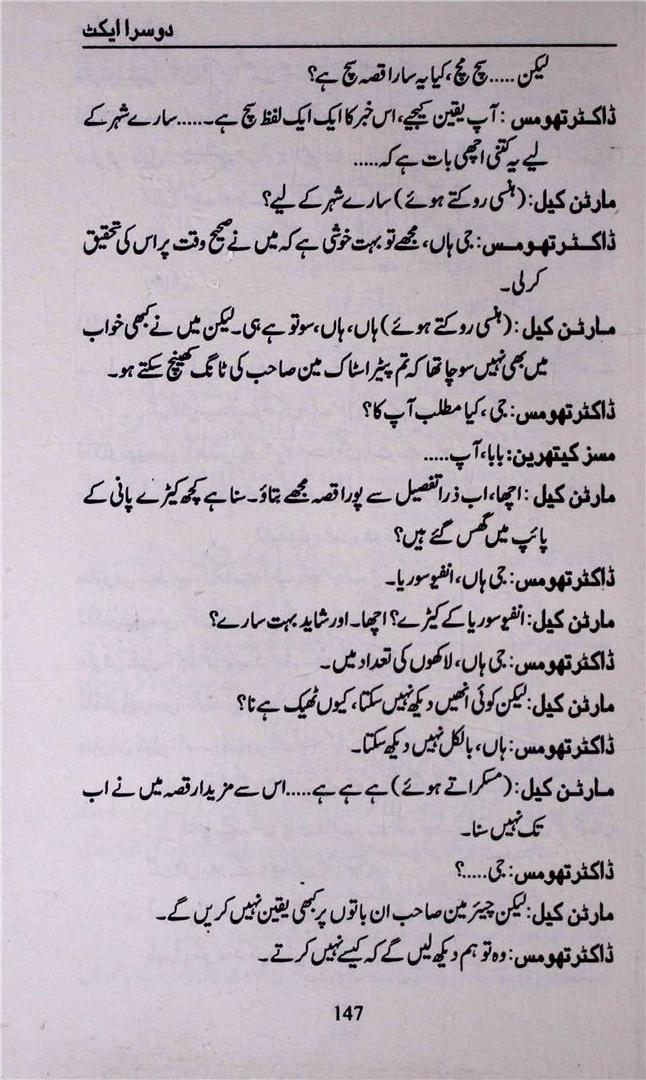 دوسرا ایکٹ
لیکن ..... سچ مچ، کیا یہ سارا قصہ سچ ہے؟
ڈاکٹر تھومس : آپ یقین کیجیے، اس خبر کا ایک ایک لفظ سچ ہے۔ ..... سارے شہر کے
لیے یہ کتنی اچھی بات ہے کہ .....
مارٹن کیل : (ہنسی روکتے ہوئے) سارے شہر کے لیے؟
ڈاکٹر تھومس : جی ہاں، مجھے تو بہت خوشی ہے کہ میں نے صحیح وقت پر اس کی تحقیق
کر لی۔
مارٹن کیل : (ہنسی روکتے ہوئے) ہاں، ہاں، سو تو ہے ہی۔ لیکن میں نے کبھی خواب
میں بھی نہیں سوچا تھا کہ تم پیٹر اسٹاک مین صاحب کی ٹانگ کھینچ سکتے ہو۔
ڈاکٹر تھومس : جی، کیا مطلب آپ کا؟
مسز کیتھرین : بابا، آپ .....
مارٹن کیل : اچھا، اب ذرا تفصیل سے پورا قصہ مجھے بتاؤ۔ سنا ہے کچھ کیڑے پانی کے
پائپ میں گھس گئے ہیں؟
ڈاکٹر تھومس : جی ہاں، انفیوسوریا۔
مارٹن کیل : انفیوسوریا کے کیڑے؟ اچھا۔ اور شاید بہت سارے؟
ڈاکٹر تھومس : جی ہاں، لاکھوں کی تعداد میں۔
مارٹن کیل : لیکن کوئی انھیں دیکھ نہیں سکتا، کیوں ٹھیک ہے نا؟
ڈاکٹر تھومس : ہاں، بالکل نہیں دیکھ سکتا۔
مارٹن کیل : (مسکراتے ہوئے) ہے ہے ہے ..... اس سے مزیدار قصہ میں نے اب
تک نہیں سنا۔
ڈاکٹر تھومس : جی ....؟
مارٹن کیل : لیکن چیئرمین صاحب ان باتوں پر کبھی یقین نہیں کریں گے۔
ڈاکٹر تھومس : وہ تو ہم دیکھ لیں گے کہ کیسے نہیں کرتے۔
147